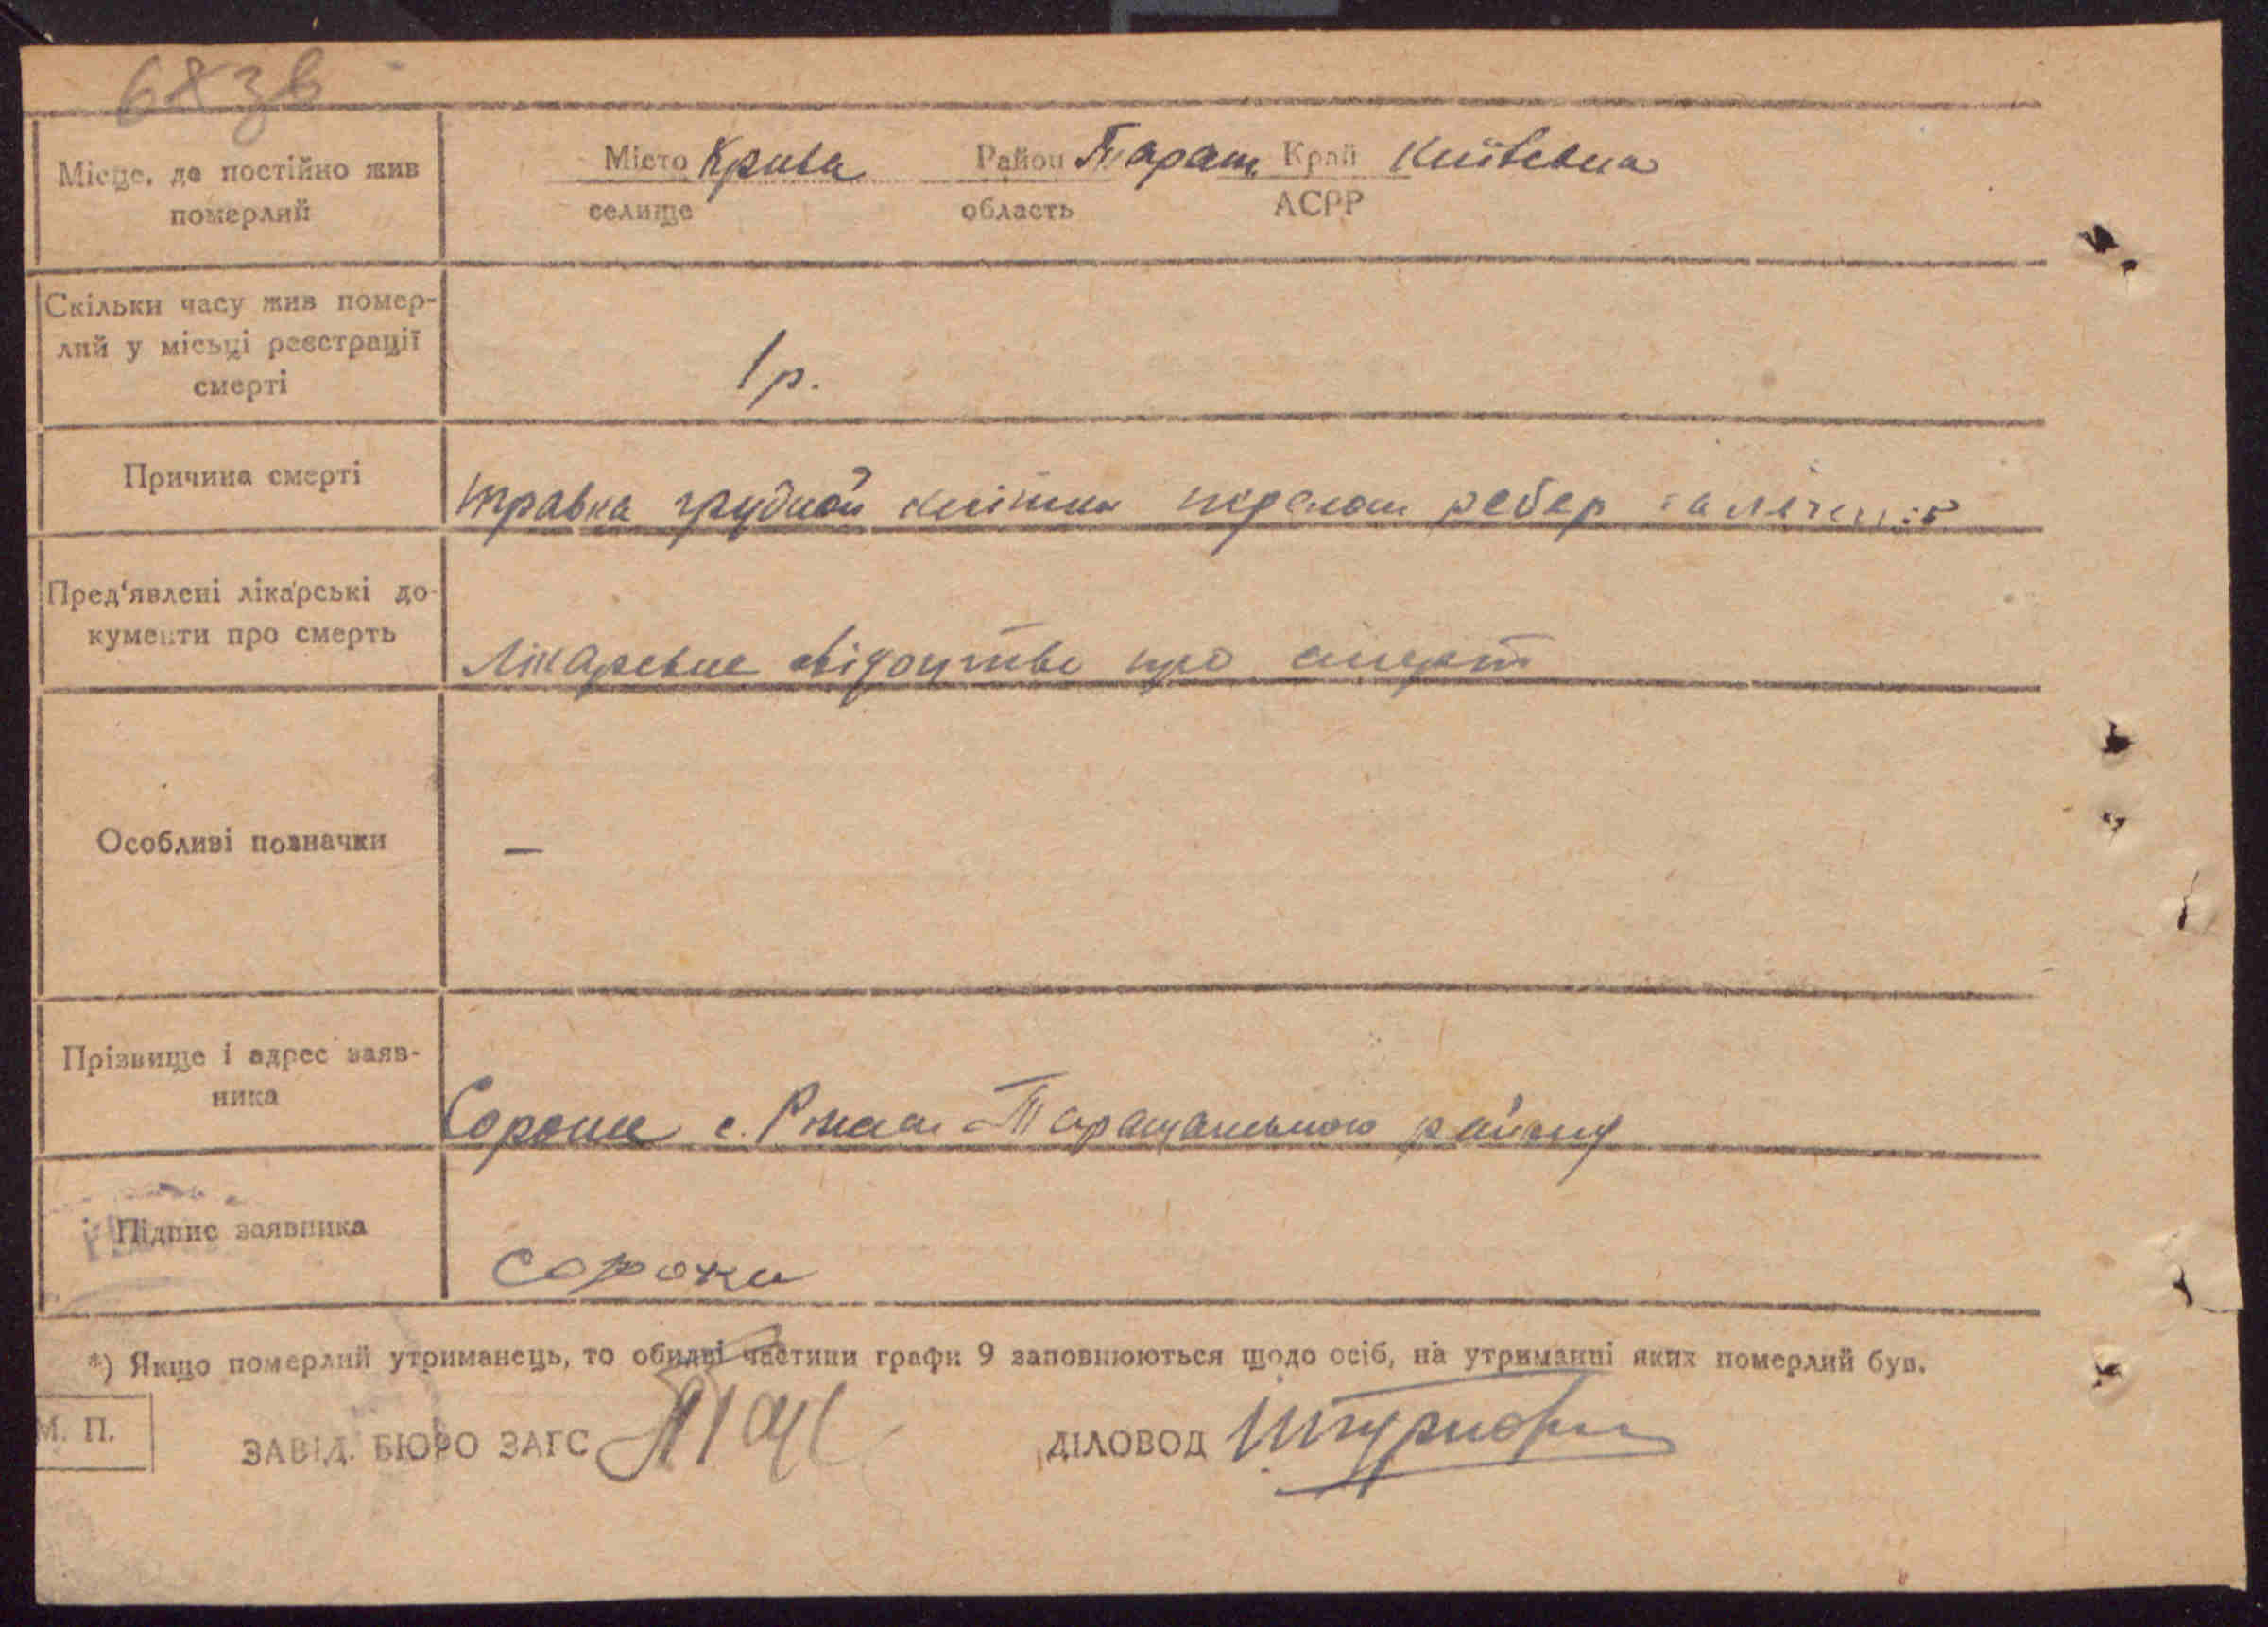 68зв
Місце, де постійно жив
померлий
Місто Крива Район Таращ. Край Київська
селище область АСРР
Скільки часу жив помер-
лий у місьці реєстрації
смерті
1 р.
Причина смерті
травма грудной клітки перелом ребер
Пред'явлені лікарські до-
кументи про смерть
Лікарське свідоцтво про смерть
Особливі позначки
—
Прізвище і адрес заяв-
ника
Сорока с. Таращанського району
Підпис заявника
Сорока
*) Якщо померлий утриманець, то обидві частини графи 9 заповнюються щодо осіб, на утриманні яких померлий був.
М. П.
ЗАВІД. БЮРО ЗАГС ДІЛОВОД